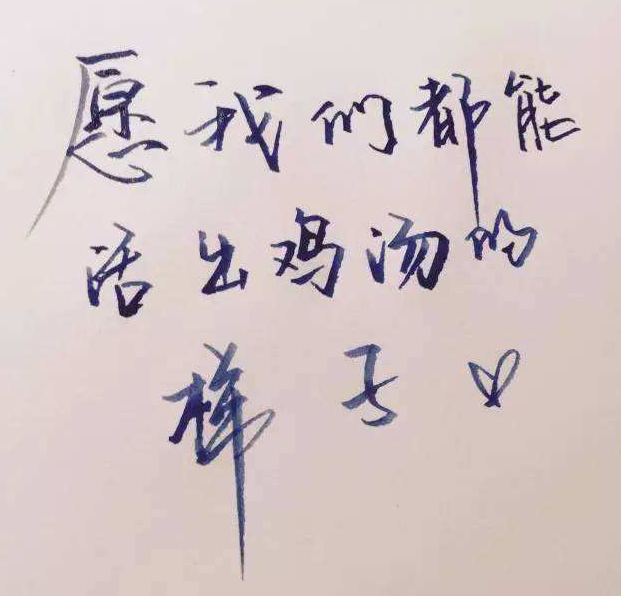 愿我们都能
活出鸡汤的
样子♡